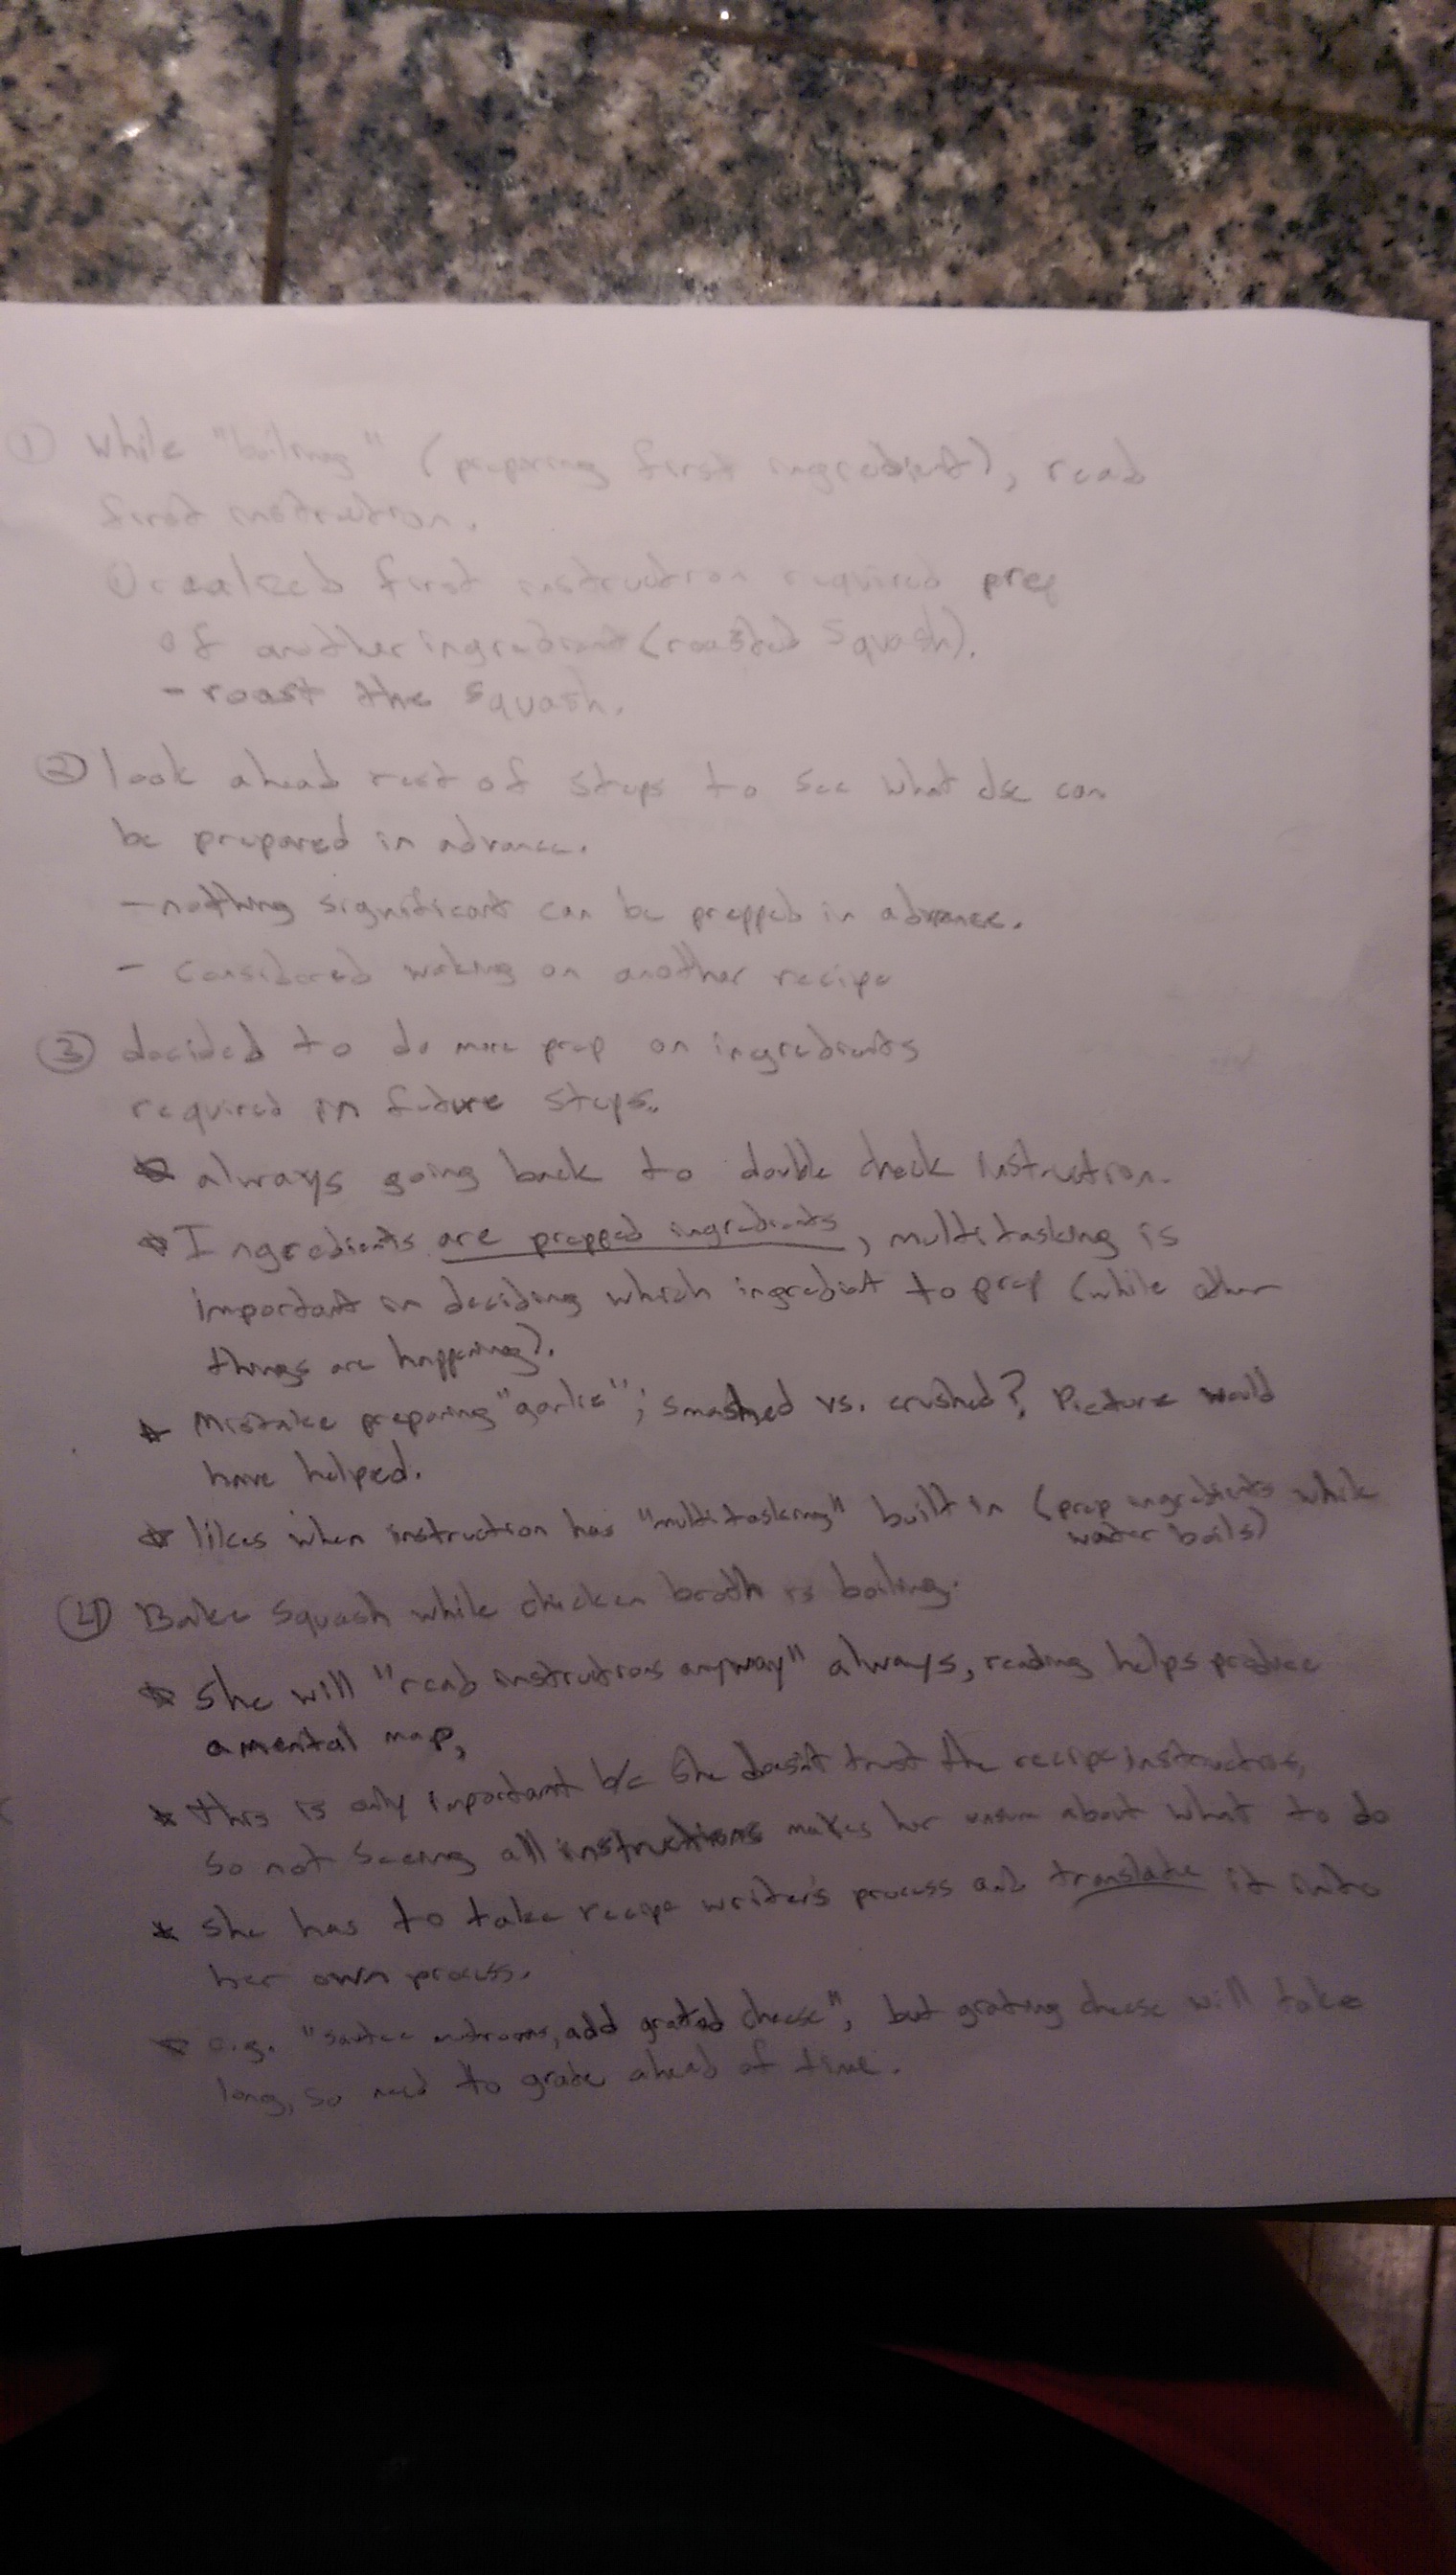 ① while "boiling" (preparing first ingredient), read
first instruction.
① realized first instruction required prep
of another ingredient (roasted squash).
- roast the squash.
② look ahead rest of steps to see what else can
be prepared in advance.
- nothing significant can be prepped in advance.
- considered working on another recipe
③ decided to do more prep on ingredients
required in future steps.
* always going back to double check instruction.
* Ingredients are prepped ingredients, multitasking is
important in deciding which ingredient to prep (while other
things are happening).
* Mistake preparing "garlic"; smashed vs. crushed? Picture would
have helped.
* likes when instruction has "multitasking" built in (prep ingredients while
water boils)
④ Bake squash while chicken broth is boiling.
* she will "read instructions anyway" always, reading helps produce
a mental map,
* this is only important b/c she doesn't trust the recipe instructions,
so not seeing all instructions makes her unsure about what to do
* she has to take recipe writer's process and translate it into
her own process.
* e.g. "sautee , add grated cheese", but grating cheese will take
long, so need to grate ahead of time.